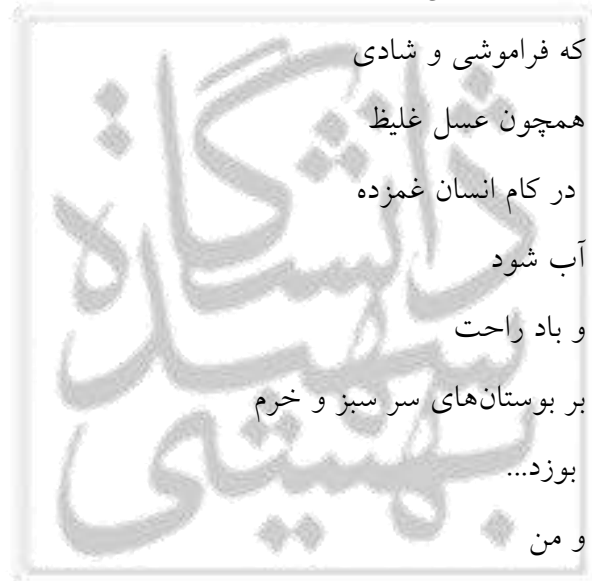 که فراموشی و شادی
همچون عسل غلیظ
در کام انسان غمزده
آب شود
و باد راحت
بر بوستان‌های سر سبز و خرم
بوزد...
و من
دانشگاه
شهید
بهشتی